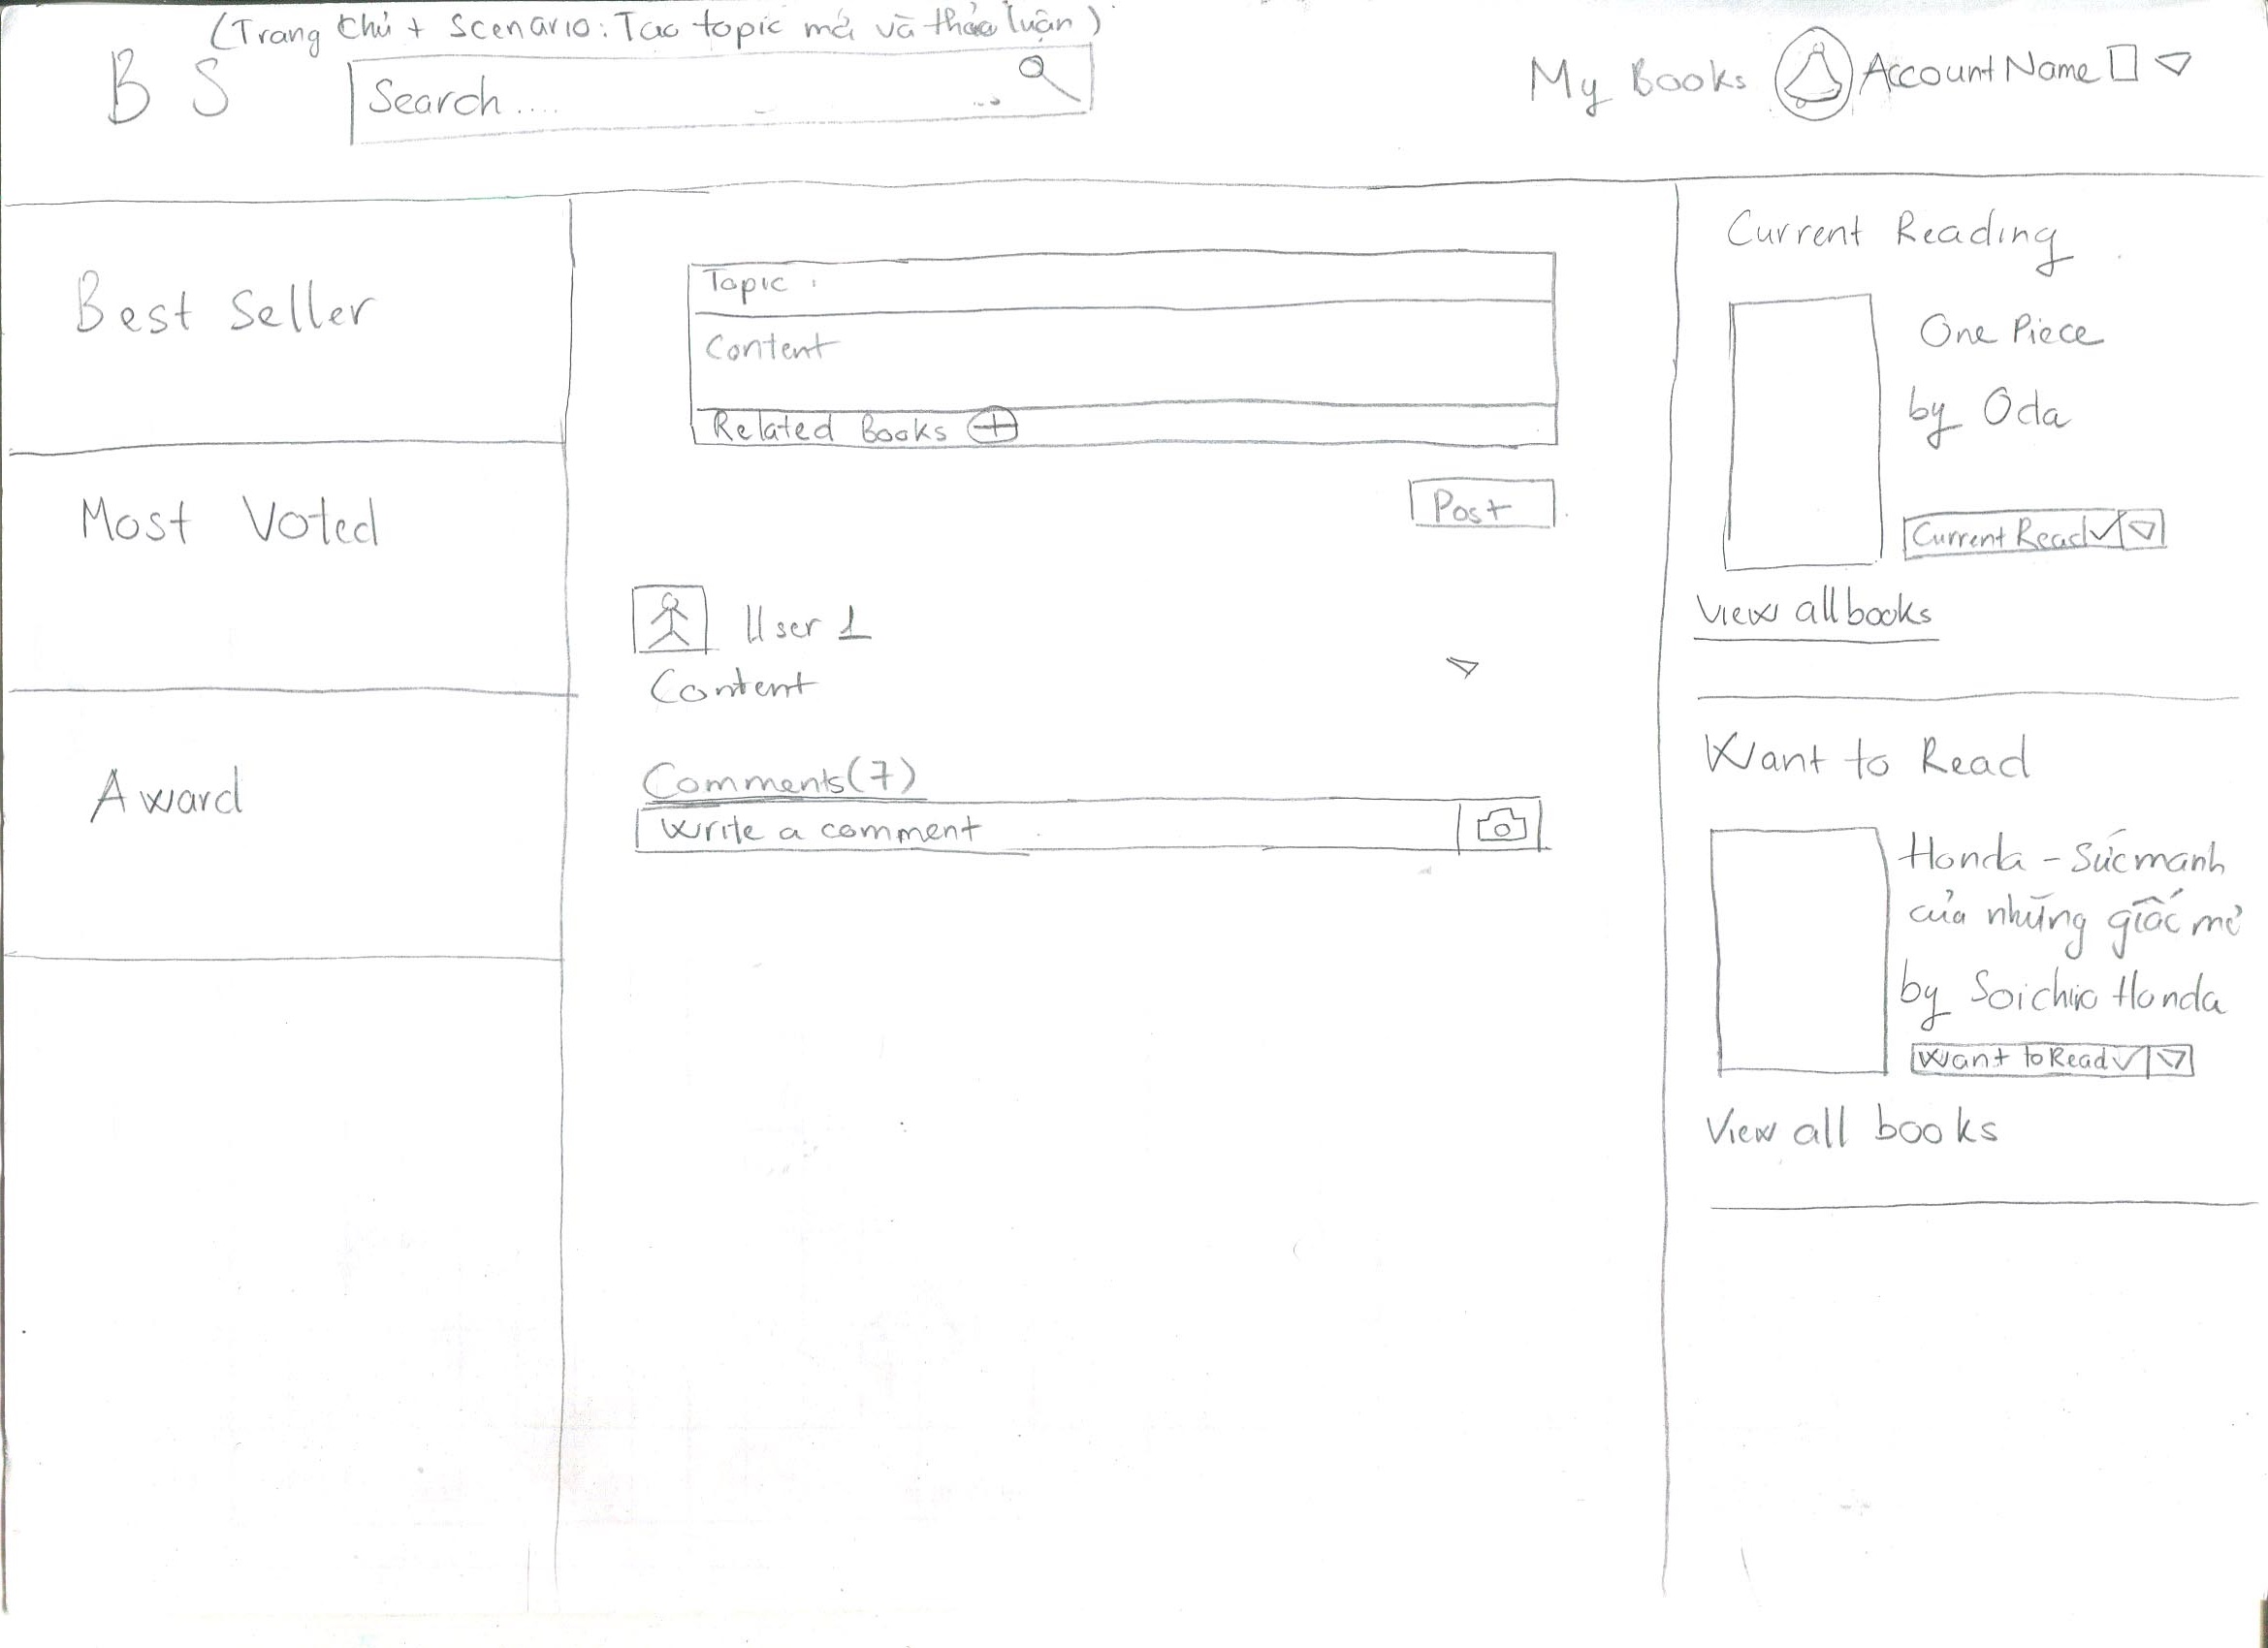 (Trang chủ + Scenario: Tạo topic mới và thảo luận)
B S
Search ....
My Books
Account Name
Best Seller
Most Voted
Award
Topic :
Content
Related Books
Post
User 1
Content
Comments (7)
Write a comment
Current Reading
One Piece
by Oda
Current Read
View all books
Want to Read
Honda - Sức mạnh
của những giấc mơ
by Soichiro Honda
Want to Read
View all books